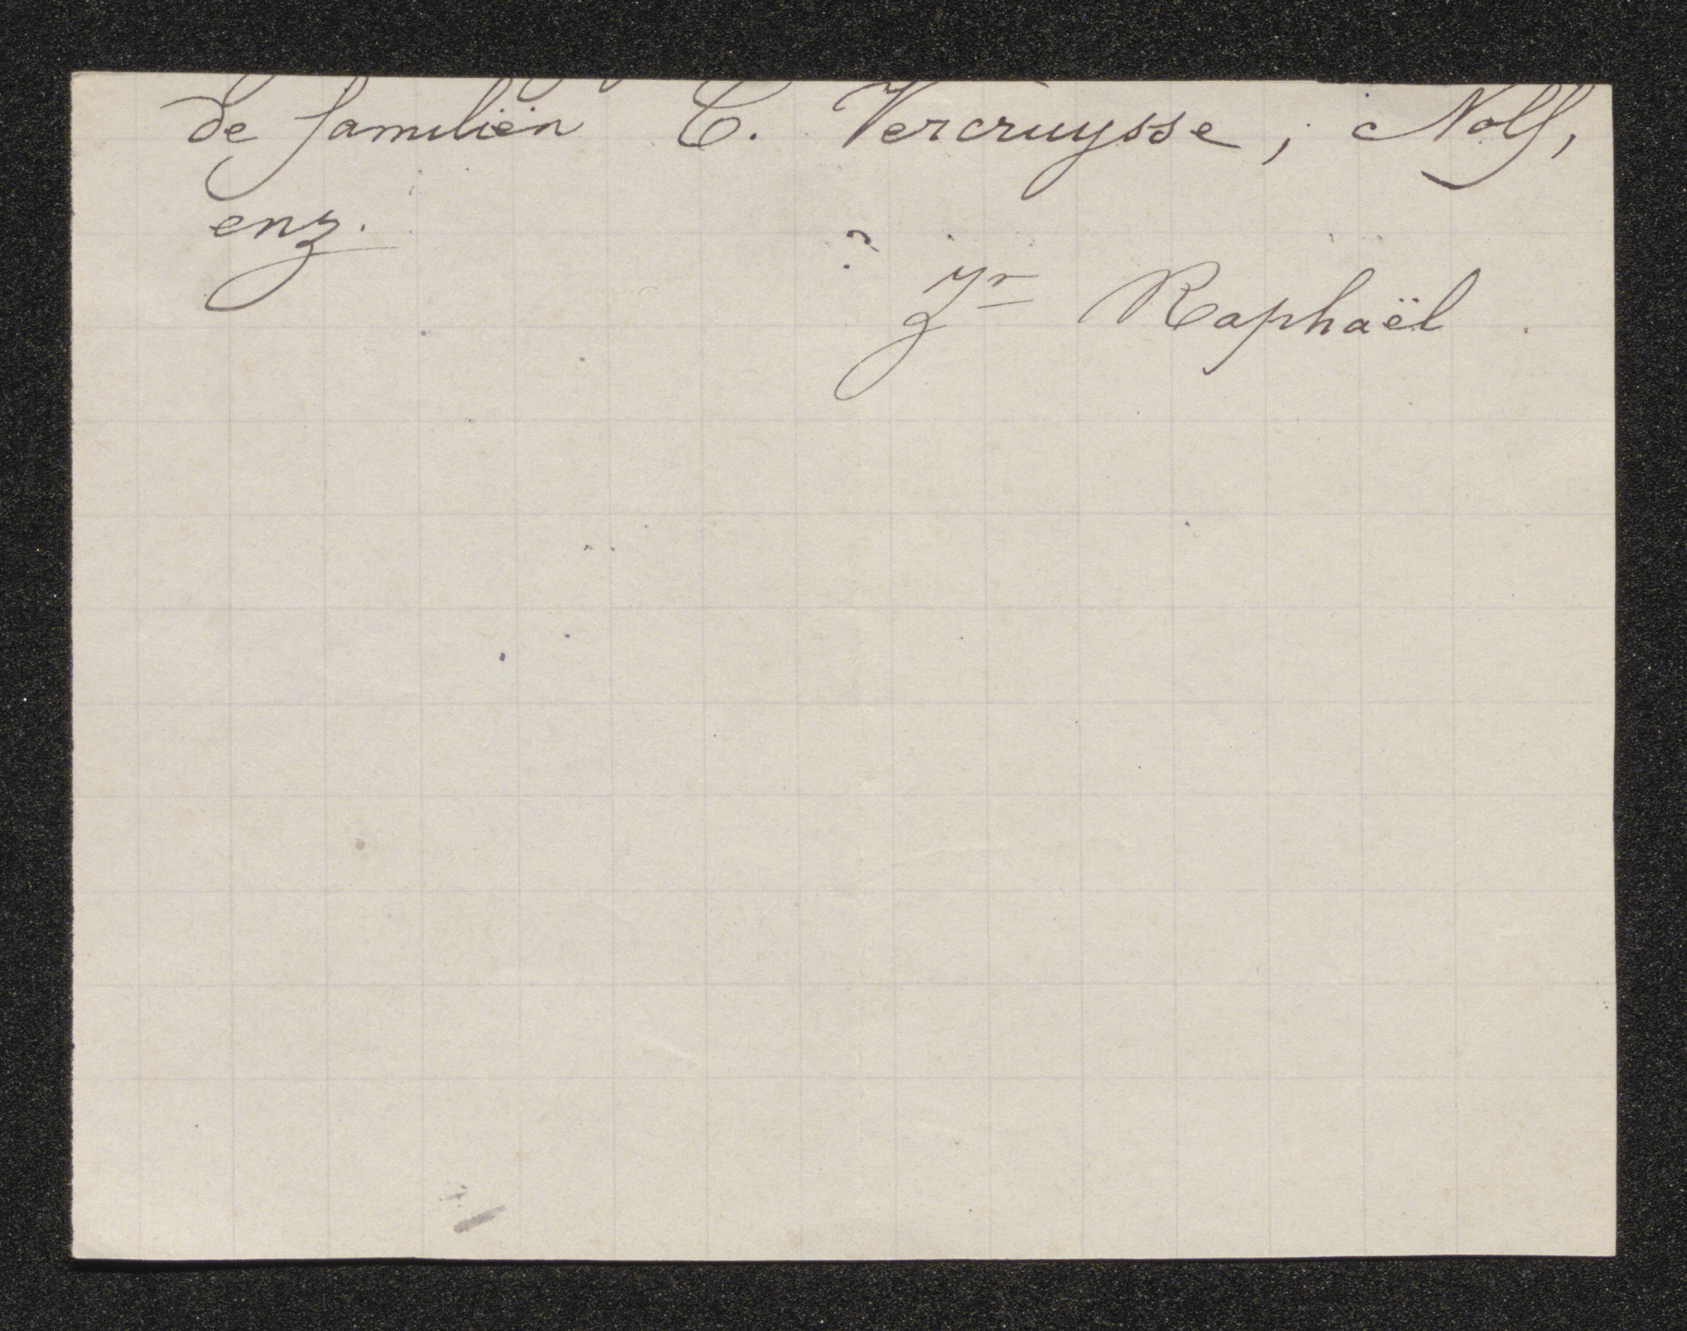 de familiën C. Vercruysse, Nolf,
enz.
Zr Raphaël